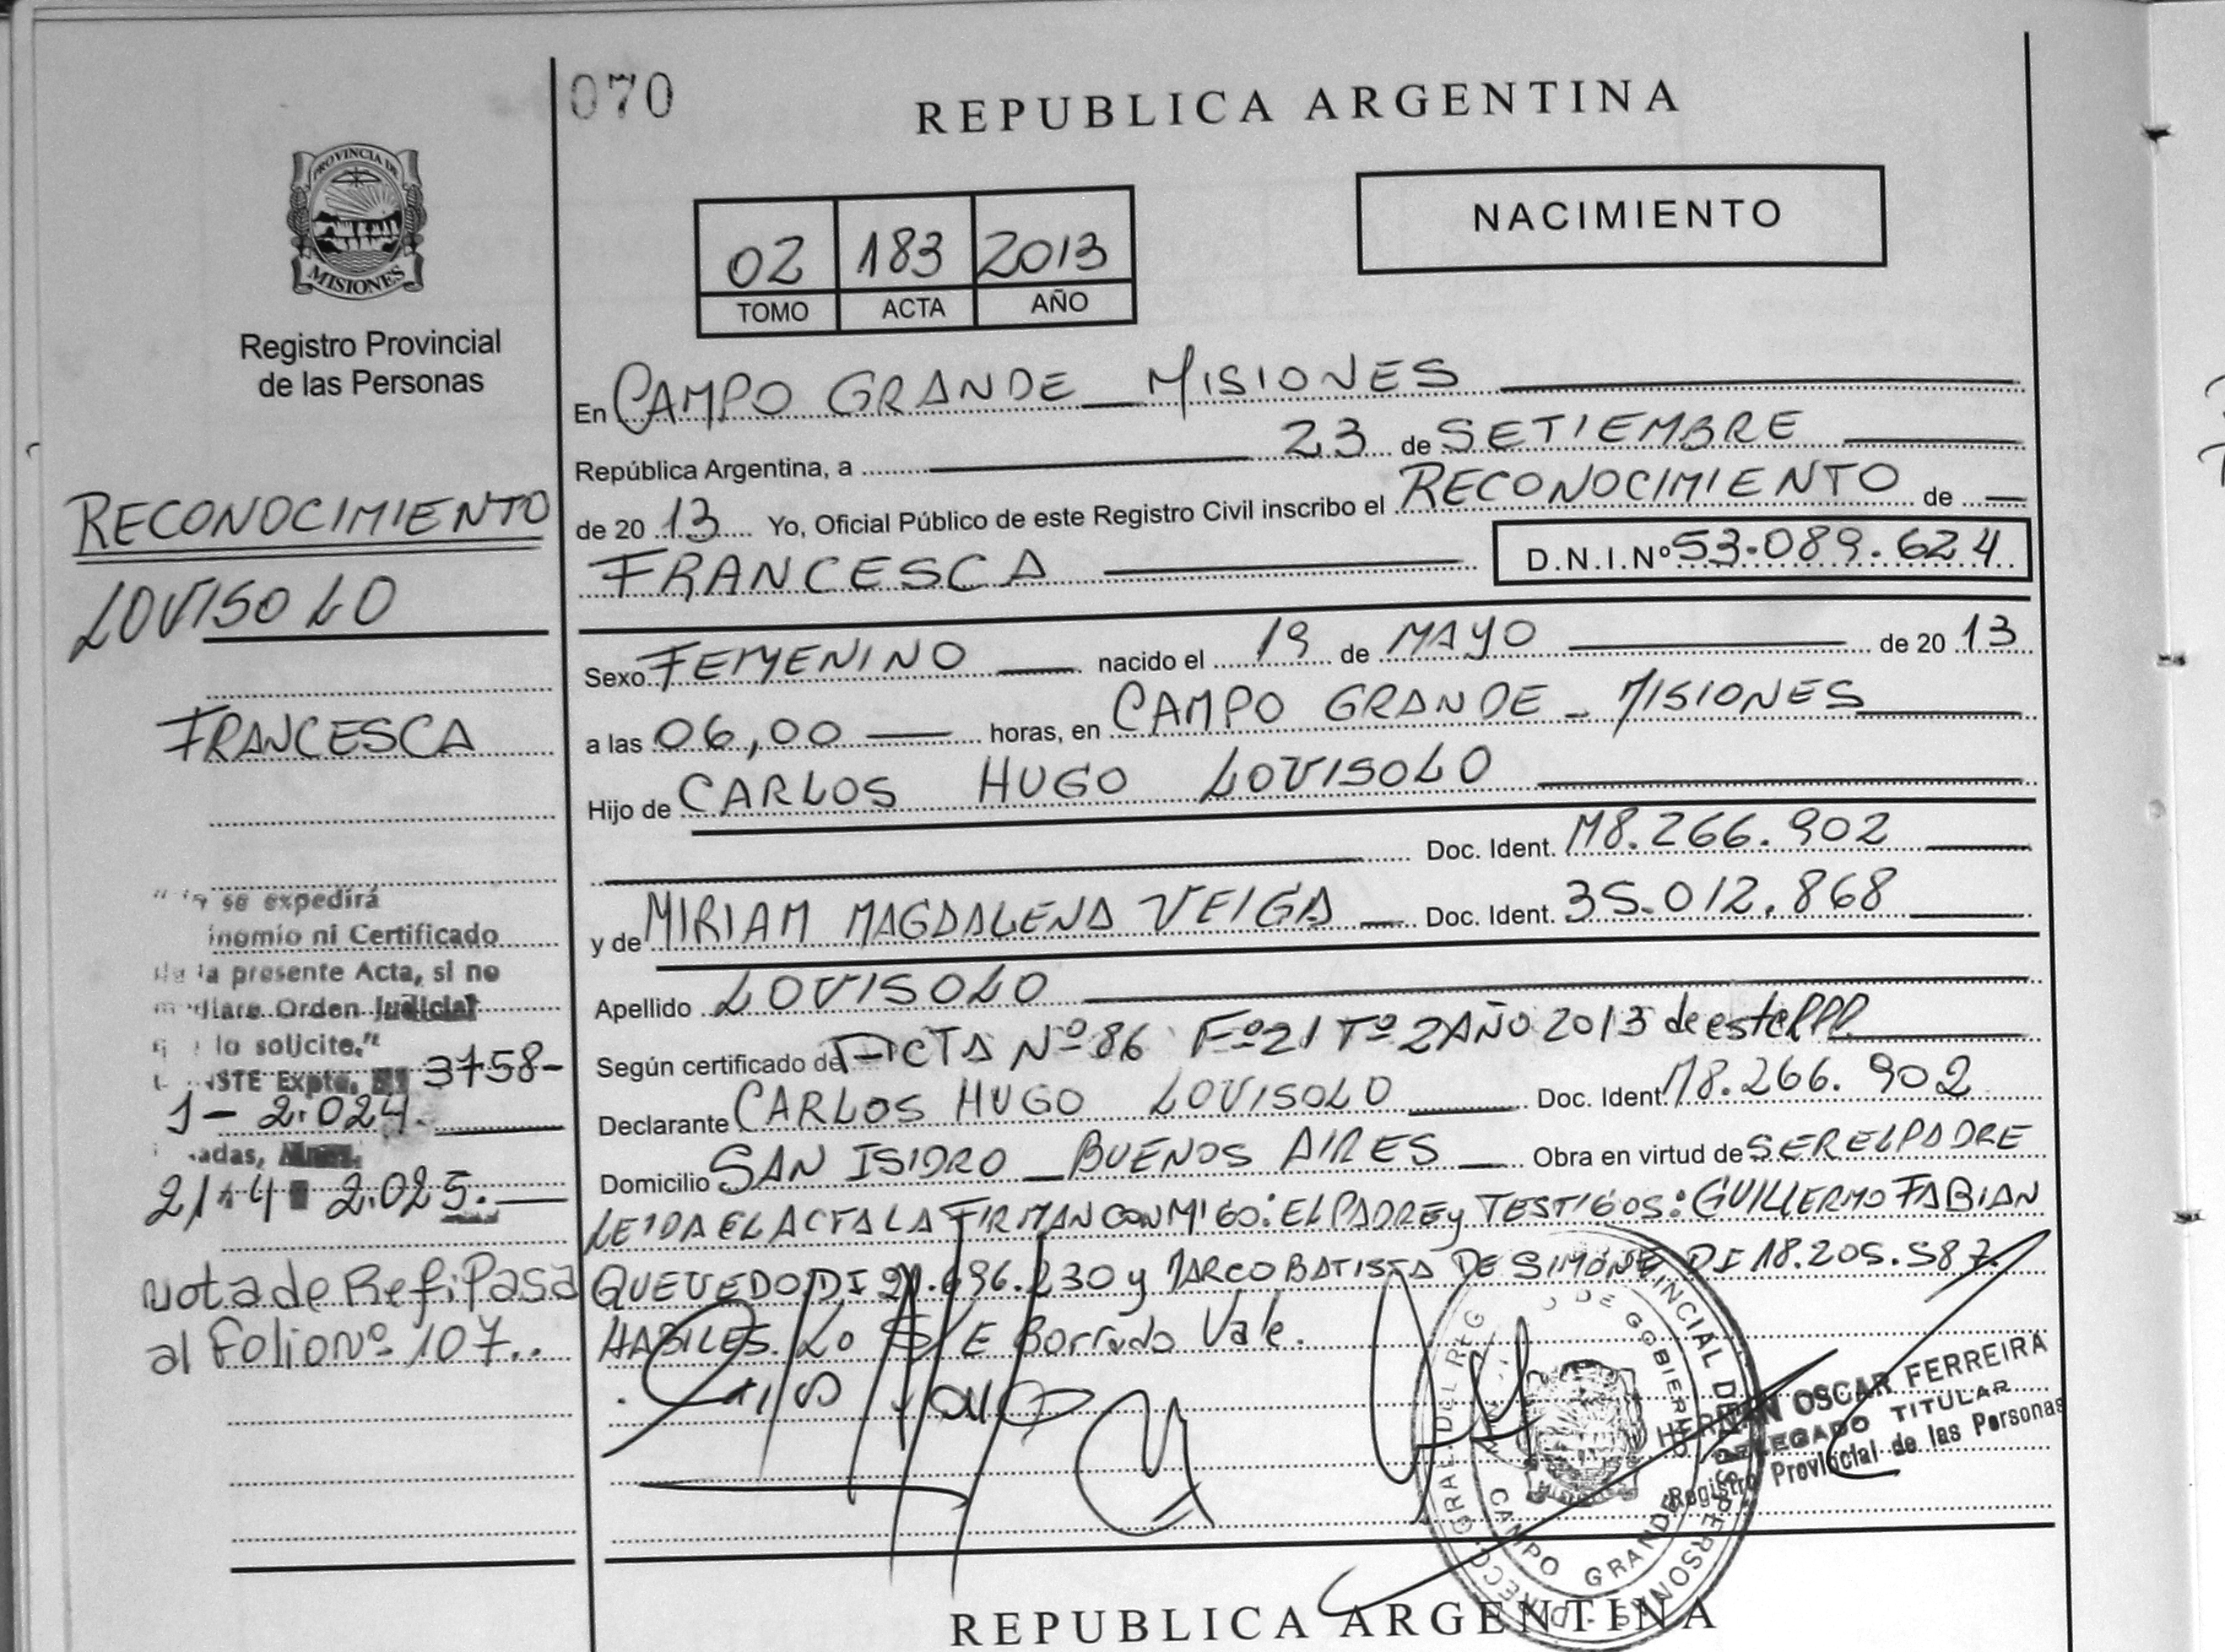 070
REPUBLICA ARGENTINA
PROVINCIA DE
MISIONES
Registro Provincial
de las Personas
02 183 2013
TOMO ACTA AÑO
NACIMIENTO
En CAMPO GRANDE _ MISIONES
República Argentina, a 23 de SETIEMBRE
de 20 13 Yo, Oficial Público de este Registro Civil inscribo el RECONOCIMIENTO de
FRANCESCA D.N.I.Nº 53.089.624
Sexo FEMENINO nacido el 19 de MAYO de 20 13
a las 06,00 horas, en CAMPO GRANDE - MISIONES
Hijo de CARLOS HUGO LOVISOLO
Doc. Ident. M8.266.902
y de MIRIAM MAGDALENA VEIGA Doc. Ident. 35.012.868
Apellido LOVISOLO
Según certificado de ACTA Nº 86 Fº 21 Tº 2 AÑO 2013 de este RPP
Declarante CARLOS HUGO LOVISOLO Doc. Ident. M8.266.902
Domicilio SAN ISIDRO _ BUENOS AIRES Obra en virtud de SER EL PADRE
LEIDA EL ACTA LA FIRMAN CONMIGO: EL PADRE y TESTIGOS: GUILLERMO FABIAN
QUEVEDO DI .696.230 y MARCO BATISTA DE SIMONE DI 18.205.587.
HABILES. Lo S/E Borrado Vale.
RECONOCIMIENTO
LOVISOLO
FRANCESCA
se expedirá
ni Certificado
la presente Acta, si no
Orden Judicial
lo solicite."
Expte. Nº 3758-
1-2.024.
Mnes.
21-4-2.025.
Nota de Ref: Pasa
al Folio nº 107..
HERNAN OSCAR FERREIRA
DELEGADO TITULAR
Registro Provincial de las Personas
DE GOBIERNO
CAMPO GRANDE
REPUBLICA ARGENTINA